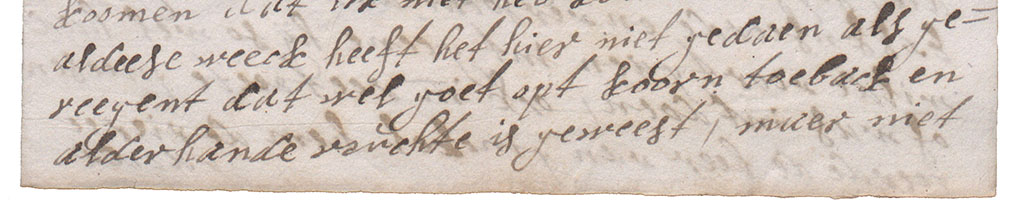 koomen dat ik niet heb
aldeese weeck heeft het hier niet gedaen als ge=
reegent dat wel goet opt koorn toeback en
alderhande vruchte is geweest, maer niet